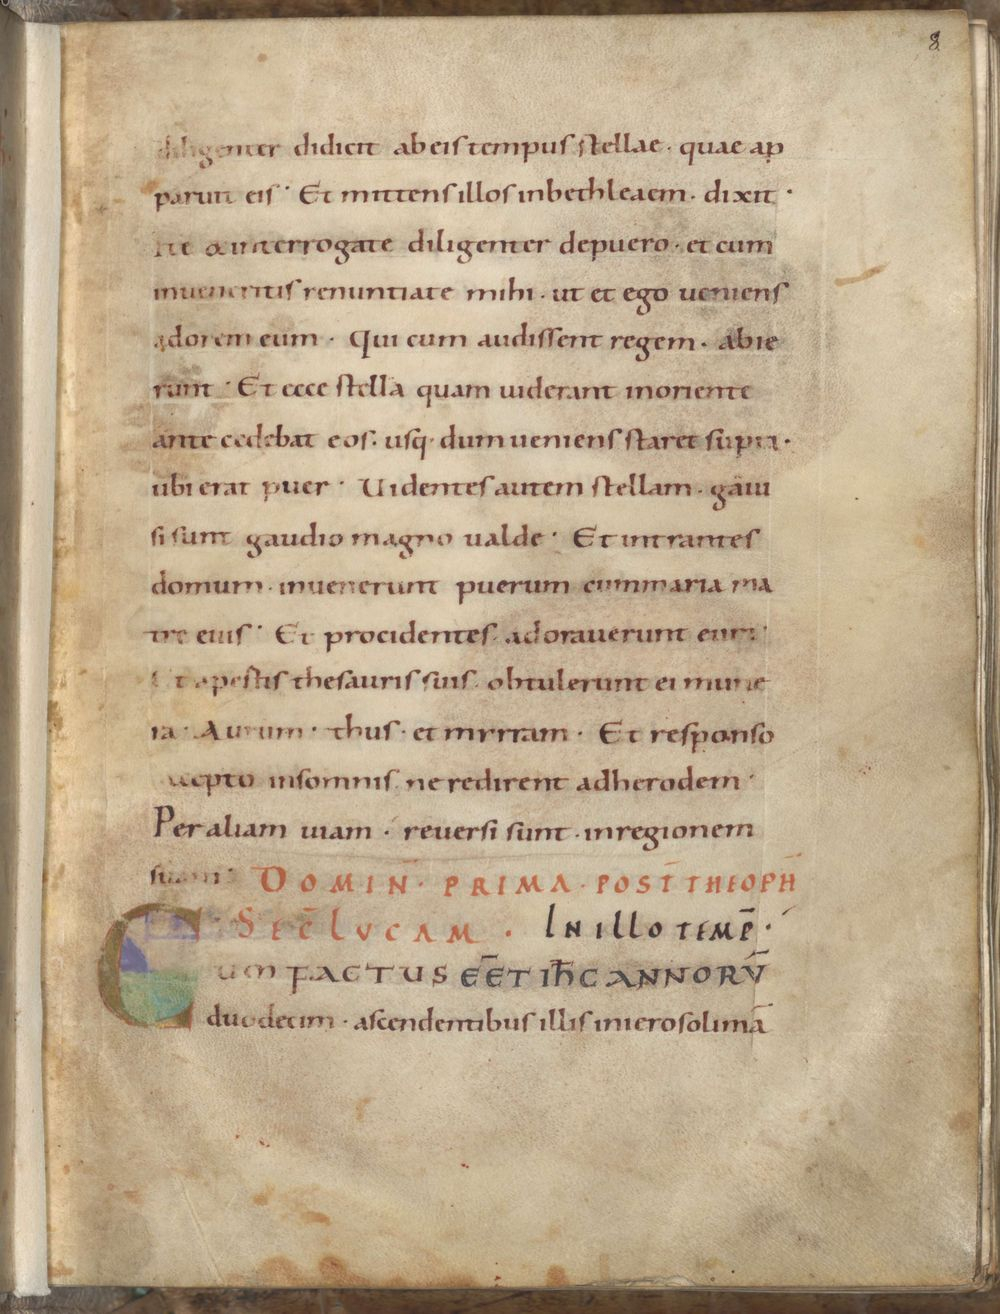 8
diligenter didicit ab eis tempus stellae · quae ap
paruit eis · Et mittens illos in bethleaem · dixit ·
Ite & interrogate diligenter de puero · et cum
inueneritis renuntiate mihi · ut et ego ueniens
adorem eum · Qui cum audissent regem · abie
runt · Et ecce stella quam uiderant in oriente
antecedebat eos · usq· dum ueniens staret supra ·
ubi erat puer · Uidentes autem stellam · gaui
si sunt gaudio magno ualde · Et intrantes
domum · inuenerunt puerum cum maria ma
tre eius · Et procidentes adorauerunt eum ·
Et apertis thesauris suis obtulerunt ei mune
ra · Aurum · thus · et mirram · Et responso
accepto in somnis ne redirent ad herodem ·
Per aliam uiam · reuersi sunt · in regionem
suam · DOMIN̄ · PRIMA · POST̄ THEOPH̄
SEC̄ LUCAM · IN ILLO TEMP̄ ·
CUM FACTUS EĒT IH̄C ANNORŪ
duodecim · ascendentibus illis in ierosolimā